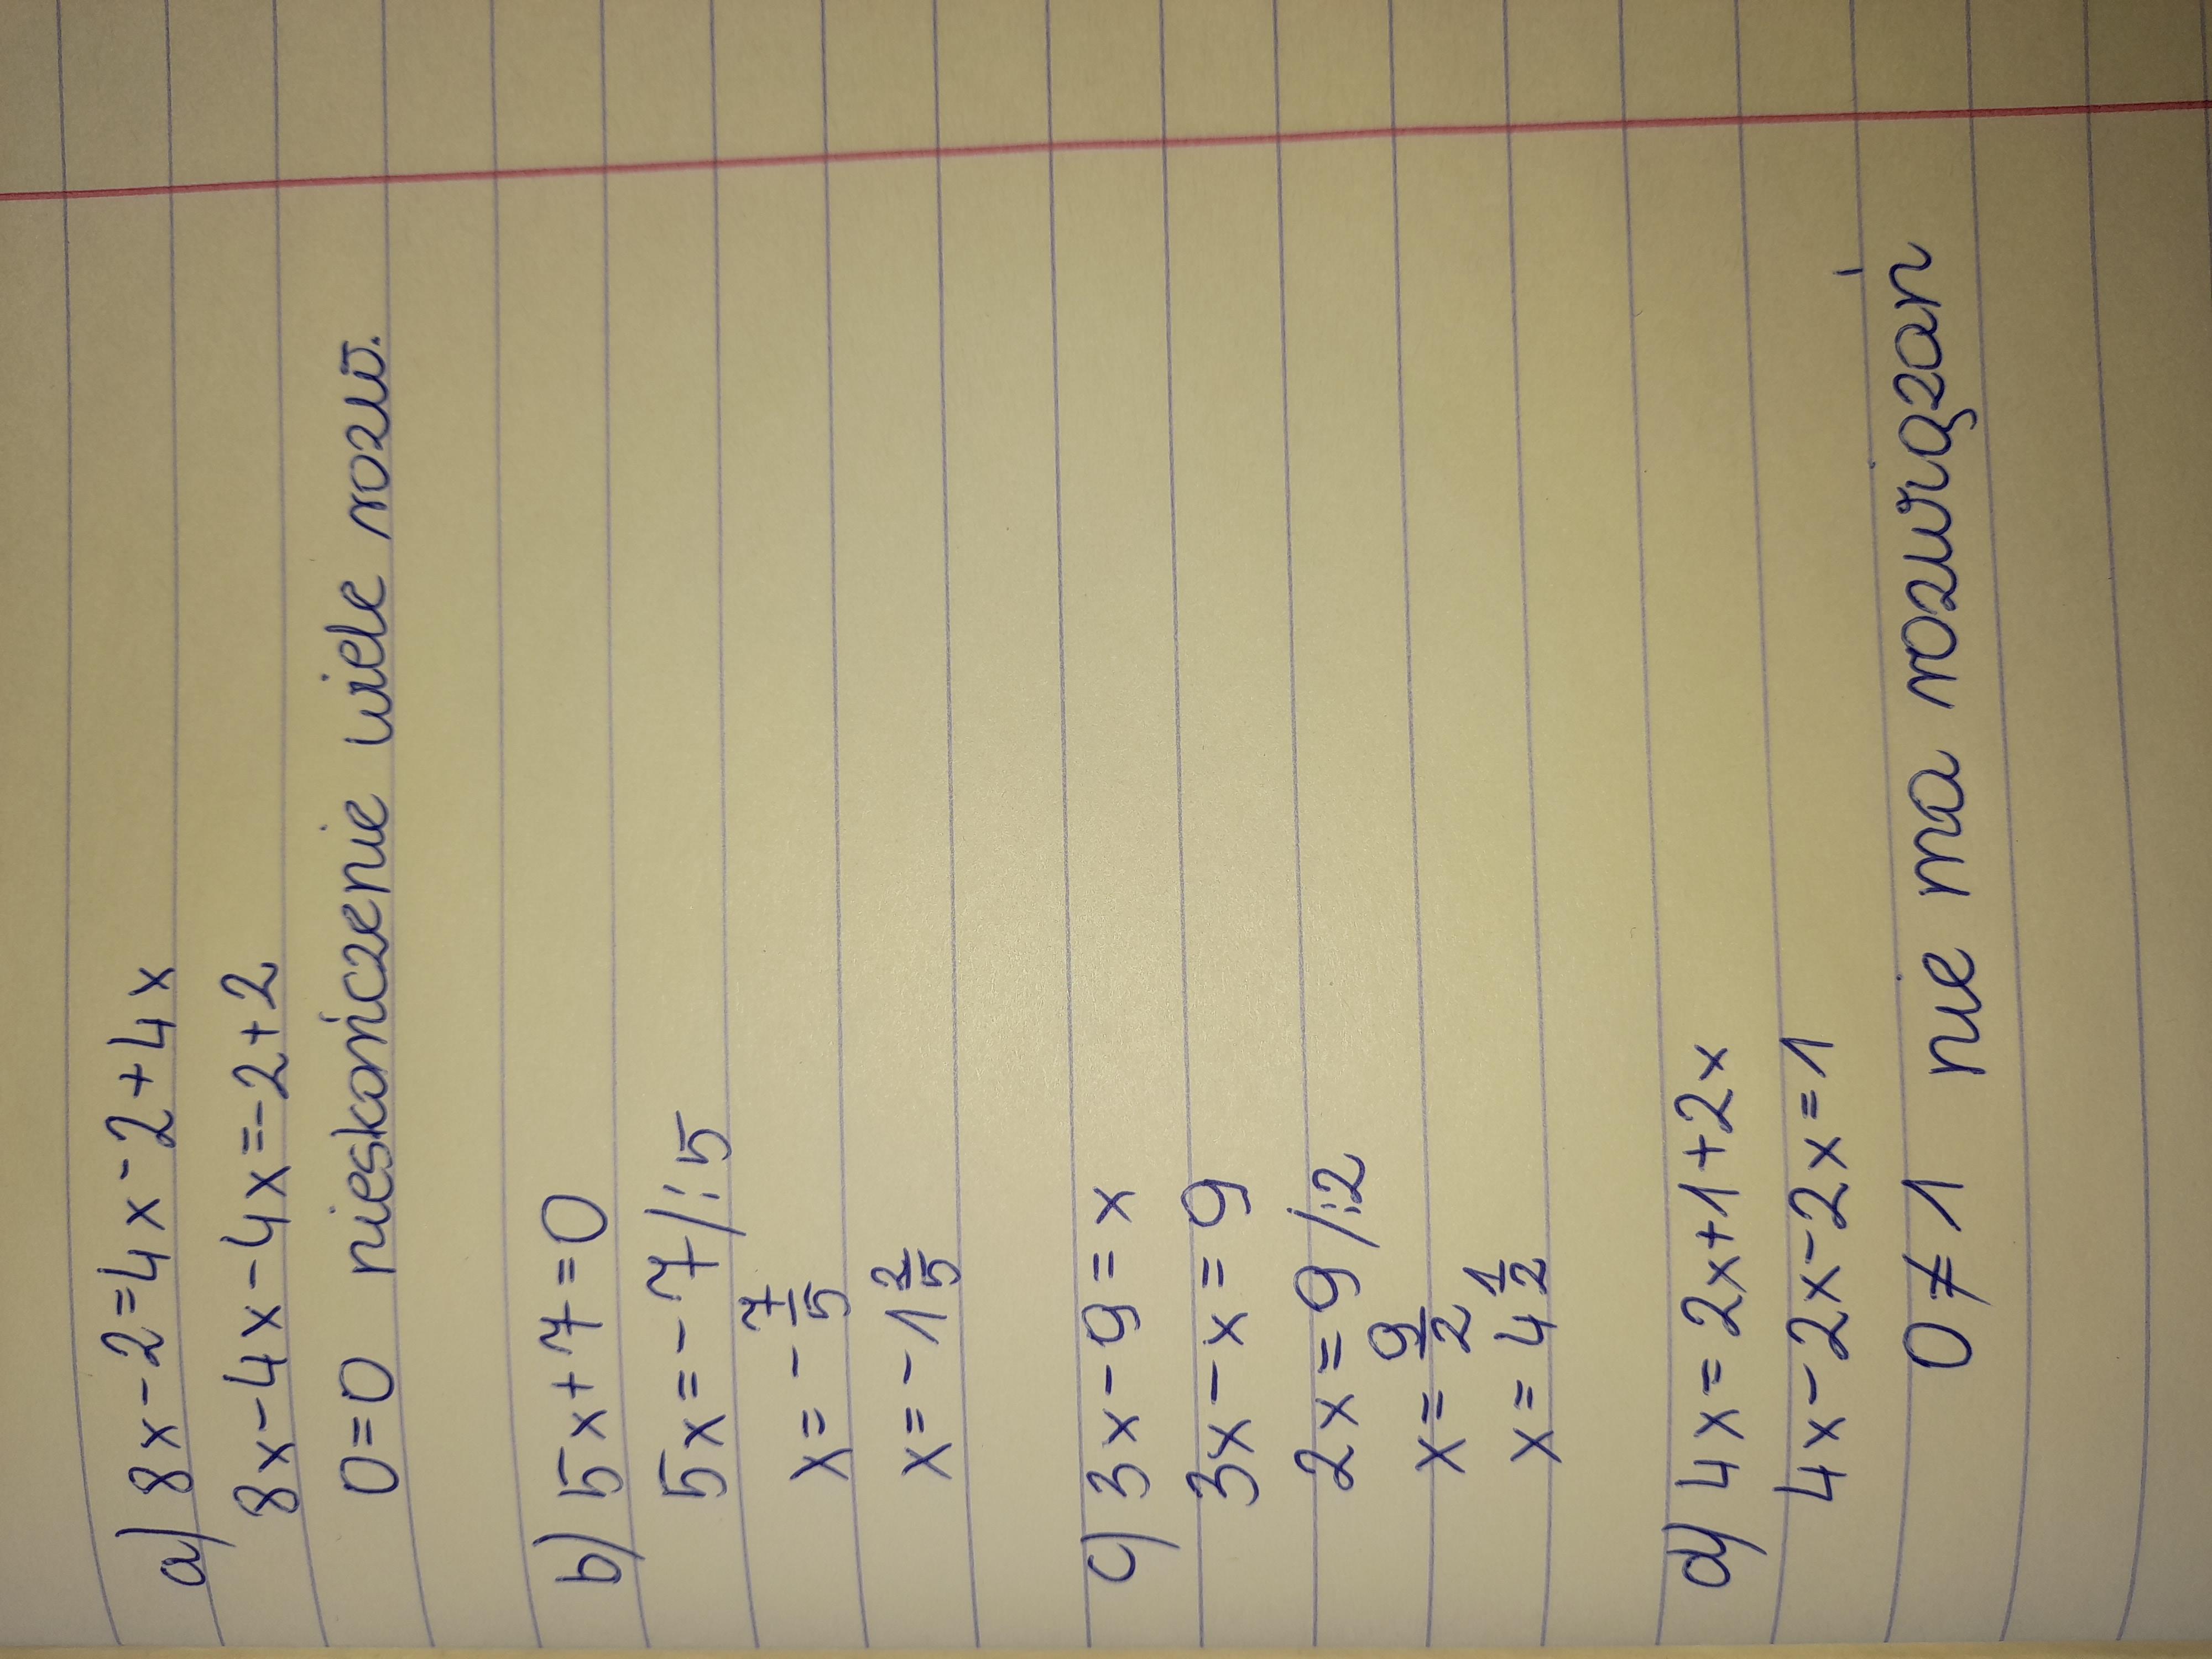 a) 8x-2=4x-2+4x
8x-4x-4x=-2+2
0=0 nieskończenie wiele rozw.
b) 5x+7=0
5x=-7/:5
x=-7/5
x=-1 2/5
c) 3x-9=x
3x-x=9
2x=9/:2
x=9/2
x=4 1/2
d) 4x=2x+1+2x
4x-2x-2x=1
0≠1 nie ma rozwiązań